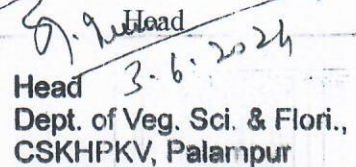 Head
3.6.2024
Head
Dept. of Veg. Sci. & Flori.,
CSKHPKV, Palampur